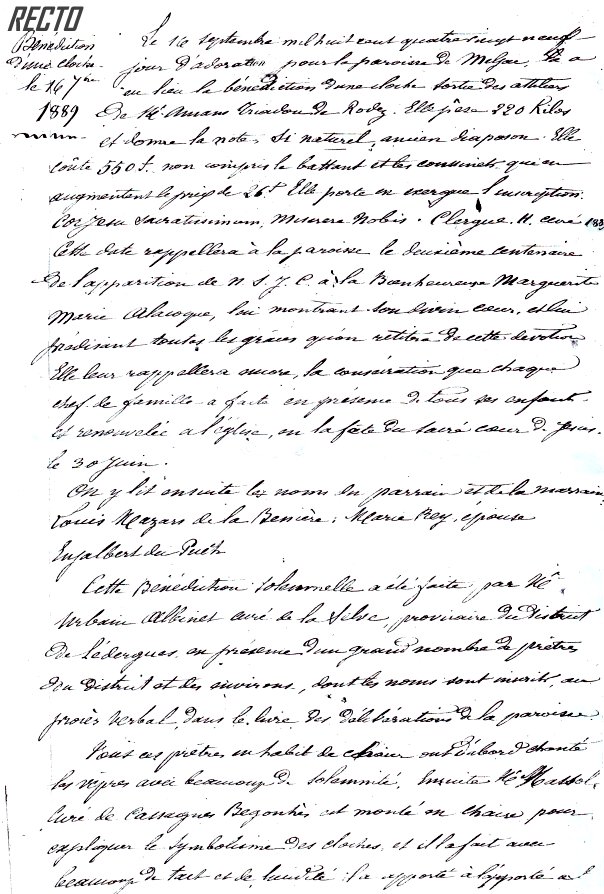 RECTO
Bénédiction
d'une cloche
le 16 7bre
1889
Le 16 septembre mil huit cent quatre vingt neuf
jour d'adoration pour la paroisse de Meljac, il a
eu lieu la bénédiction d'une cloche sortie des ateliers
de Mr Amans Triadou de Rodez. Elle pèse 220 Kilos
et donne la note, Si naturel, ancien diapason. Elle
coûte 550f. non compris le battant et les coussinets qui en
augmentent le prix de 26f. Elle porte en exergue l'inscription
Cor Jesu Sacratissimum, Miserere Nobis. Clergue H. curé
Cette date rappellera à la paroisse le deuxième centenaire
de l'apparition de N S J C à la Bienheureuse Marguerite
Marie Alacoque, lui montrant son divin cœur, et lui
prédisant toutes les grâces qu'on retirera de cette dévotion
Elle leur rappellera encore, la consécration que chaque
chef de famille a faite en présence de tous ses enfants.
et renouvelée à l'église, en la fête du sacré cœur de Jésus.
le 30 juin.
On y lit ensuite les noms du parrain et de la marraine
Louis Mazars de la Benière; Marie Rey, épouse
Enjalbert du Puech
Cette Bénédiction solennelle a été faite par Mr
Urbain Albinet curé de la Selve, provicaire du district
de Lédergues, en présence d'un grand nombre de prêtres
du district et des environs, dont les noms sont inscrits, au
procès verbal, dans le livre des délibérations de la paroisse
Tous ces prêtres en habit de chœur ont d'abord chanté
les vêpres avec beaucoup de solemnité, Ensuite Mr Massol
curé de Cassagnes Begonhès est monté en chaire pour
expliquer le symbolisme des cloches, et il l'a fait avec
beaucoup de tact et de lucidité: Il a apporté à l'apporté a